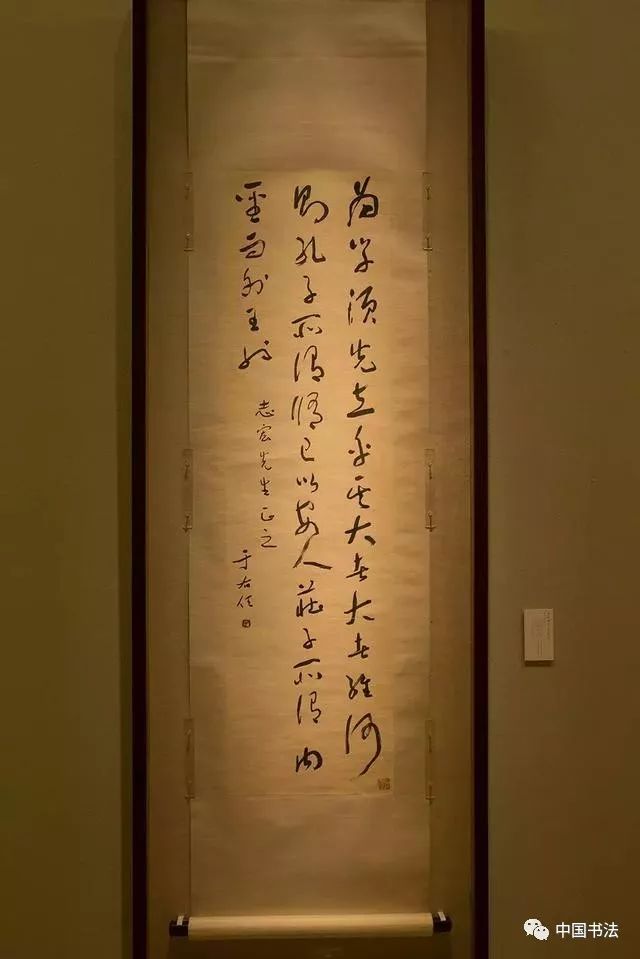 為學須先立乎其大者大者維何
則孔子所謂脩己以安人莊子所謂內
聖而外王
志宏先生正之
于右任
中国书法